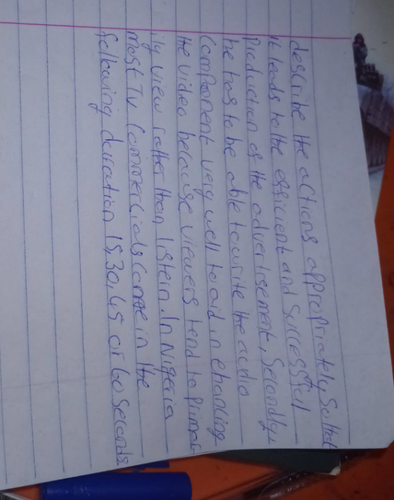 describe the actions appropriately. So that
it leads to the efficient and successful
Production of the advertisement, Secondly
he has to be able to write the audio
Component very well to aid in enhancing
the video because viewers tend to Primar
ily view rather than listein. In Nigeria
most TV Commercials Come in the
following duration 15,30,45 or 60 Seconds